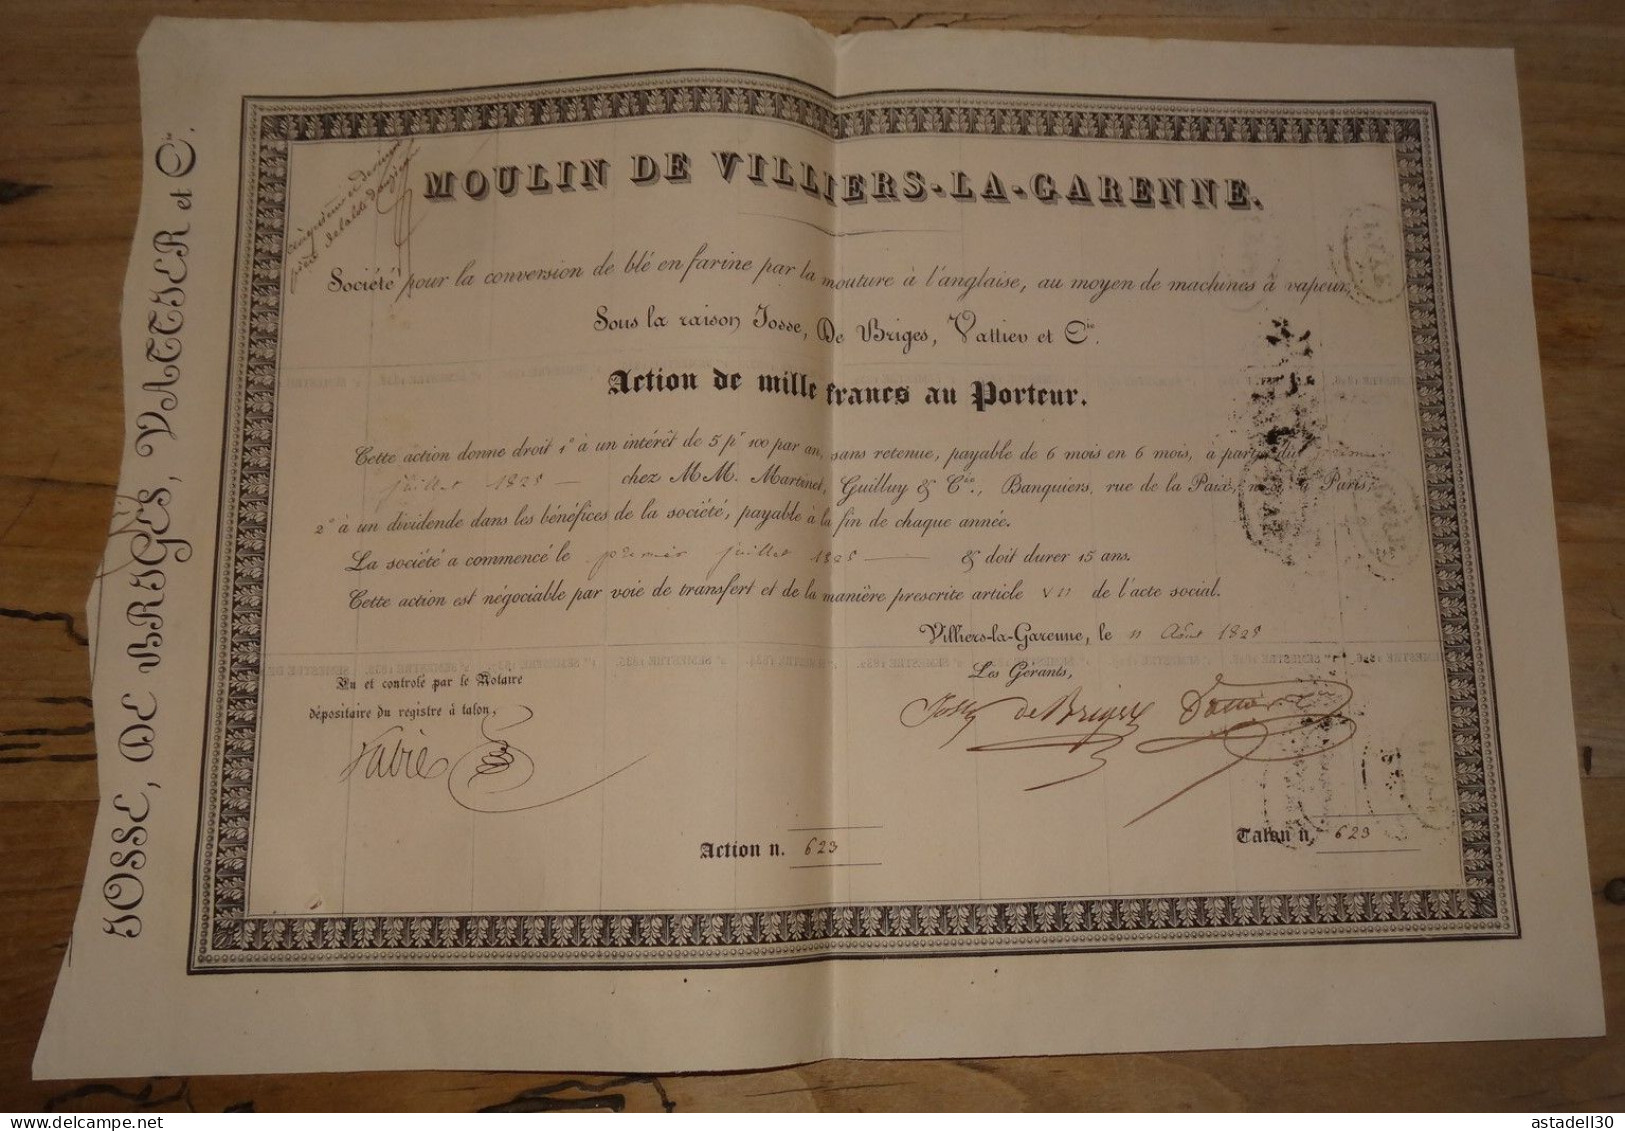 JOSSE, DE BRIGES, VATTIER et Cie.
cinquième et dernier
MOULIN DE VILLIERS-LA-GARENNE.
Société pour la conversion de blé en farine par la mouture à l'anglaise, au moyen de machines à vapeur,
Sous la raison Josse, De Briges, Vattier et Cie.
Action de mille francs au Porteur.
Cette action donne droit 1º à un intérêt de 5 pr 100 par an, sans retenue, payable de 6 mois en 6 mois, à partir du premier
juillet 1828 chez MM. Martinet, Guilluy & Cie., Banquiers, rue de la Paix, à Paris;
2º à un dividende dans les bénéfices de la société, payable à la fin de chaque année.
La société a commencé le premier juillet 1828 & doit durer 15 ans.
Cette action est négociable par voie de transfert et de la manière prescrite article VII de l'acte social.
Villiers-la-Garenne, le 11 Août 1828
Les Gérants,
Vu et contrôlé par le Notaire
dépositaire du registre à talon,
Josse de Briges Vattier
Favre
Action n. 623
Talon n. 623
astadell30